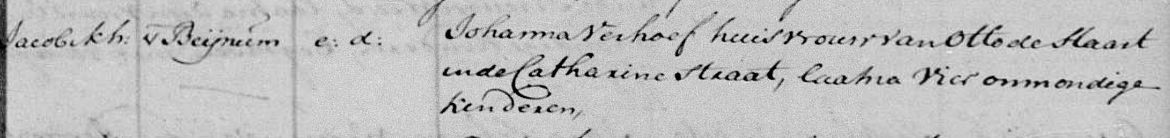 Jacobikh: v Beijnum e: d: Johanna Verhoef huisvrouw van Otto de Haart
in de Catharine Straat, laatna vier onmondige
kinderen,